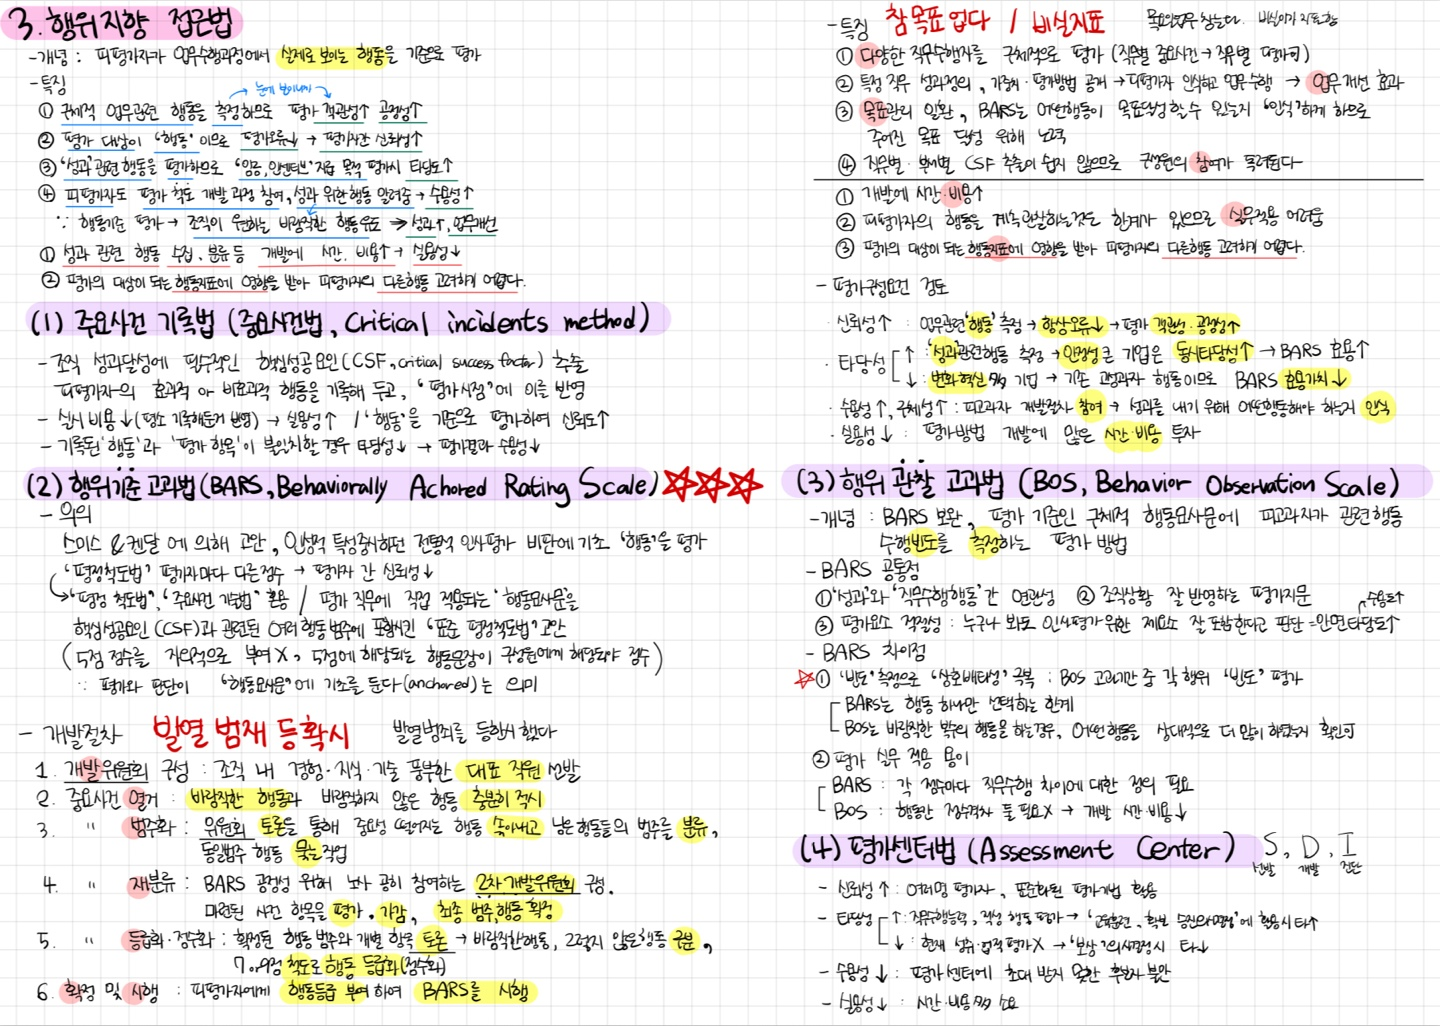 3. 행위지향 접근법
- 개념 : 피평가자가 업무수행과정에서 실제로 보이는 행동을 기준으로 평가
- 특징
눈에 보이니까
① 구체적 업무관련 행동을 측정하므로 평가 객관성↑ 공정성↑
② 평가 대상이 '행동'이므로 평가오류↓ → 평가자간 신뢰성↑
③ '성과'관련 행동을 평가하므로 "임금, 인센티브" 지급 목적 평가시 타당도↑
④ 피평가자도 평가 척도 개발 과정 참여, 성과 위한 행동 알려줌 → 수용성↑
∵ 행동기준 평가 → 조직이 원하는 바람직한 행동유도 ⇒ 성과↑, 업무개선
① 성과 관련 행동 수집, 분류 등 개발에 시간, 비용↑ → 실용성↓
② 평가의 대상이 되는 행동지표에 영향을 받아 피평가자의 다른행동 고려하기 어렵다.
(1) 주요사건 기록법 (중요사건법, Critical incidents method)
- 조직 성과달성에 필수적인 핵심성공요인(CSF, critical success factor) 추출
피평가자의 효과적 or 비효과적 행동을 기록해 두고, "평가시점"에 이를 반영
- 실시 비용↓(평소 기록해둔거 반영) → 실용성↑ / '행동'을 기준으로 평가하여 신뢰도↑
- 기록된 '행동'과 '평가 항목'이 불일치할 경우 타당성↓ → 평가결과 수용성↓
(2) 행위기준 고과법(BARS, Behaviorally Achored Rating Scale) ☆☆☆
- 의의
스미스 & 켄달 에 의해 고안, 인성적 특성중시하던 전통적 인사평가 비판에 기초 '행동'을 평가
'평정척도법' 평가자마다 다른점수 → 평가자 간 신뢰성↓
↪ '평정 척도법', '주요사건 기술법' 혼용 / 평가 직무에 직접 적용되는 '행동묘사문'을
핵심성공요인(CSF)과 관련된 여러 행동범주에 포함시킨 "표준 평정척도법" 고안
(5점 점수를 자의적으로 부여 X, 5점에 해당되는 행동문장이 구성원에게 해당되야 점수)
∵ 평가와 판단이 "행동묘사문"에 기초를 둔다(anchored)는 의미
- 개발절차 발열 범재 등확시 발열범죄를 등한시 했다
1. 개발위원회 구성 : 조직 내 경험·지식·기술 풍부한 대표 직원 선발
2. 중요사건 열거 : 바람직한 행동과 바람직하지 않은 행동 충분히 적시
3. " 범주화 : 위원회 토론을 통해 중요성 떨어지는 행동 솎아내고 남은행동들의 범주를 분류,
동일범주 행동 묶는작업
4. " 재분류 : BARS 공정성 위해 노사 공히 참여하는 2차 개발위원회 구성.
마련된 사건 항목을 평가·가감, 최종 범주,행동 확정
5. " 등급화·점수화 : 확정된 행동범주와 개별 항목 토론 → 바람직한행동, 그렇지 않은행동 구분,
7 or 9점 척도로 행동 등급화(점수화)
6. 확정 및 시행 : 피평가자에게 행동등급 부여 하여 BARS를 시행
- 특징 참 목표 업다 / 비실지표
① 다양한 직무수행자를 구체적으로 평가 (직무별 중요사건 → 직무별 평가可)
② 특정 직무 성과정의, 가중치·평가방법 공개 → 피평가자 인식하고 업무수행 → 업무개선 효과
③ 목표관리 일환, BARS는 어떤행동이 목표달성할 수 있는지 "인식"하게 하므로
주어진 목표 달성 위해 노력
④ 직무별·부서별 CSF 추출이 쉽지 않으므로 구성원의 참여가 독려된다
① 개발에 시간·비용↑
② 피평가자의 행동을 계속관찰하는것은 한계가 있으므로 실무적용 어려움
③ 평가의 대상이 되는 행동지표에 영향을 받아 피평가자의 다른행동 고려하기 어렵다.
- 평가구성요건 검토
· 신뢰성↑ : 업무관련 '행동' 측정 → 항상오류↓ → 평가 객관성·공정성↑
· 타당성 ↑ : '성과'관련행동 측정 → 안정성 큰 기업은 동시타당성↑ → BARS 효용↑
↓ : 변화혁신 多 기업 → 기존 고성과자 행동이므로 BARS 효용가치↓
· 수용성↑, 구체성↑ : 피고과자 개발절차 참여 → 성과를 내기 위해 어떤행동해야 하는지 인식
· 실용성↓ : 평가방법 개발에 많은 시간·비용 투자
(3) 행위 관찰 고과법 (BOS, Behavior Observation Scale)
- 개념 : BARS 보완, 평가 기준인 구체적 행동묘사문에 피고과자가 관련행동
수행빈도를 측정하는 평가 방법
- BARS 공통점
① '성과'와 '직무수행행동'간 연관성 ② 조직상황 잘 반영하는 평가지문
수용도↑
③ 평가요소 적정성 : 누구나 봐도 인사평가 위한 제요소 잘 포함한다고 판단 = 안면타당도↑
- BARS 차이점
☆① '빈도' 측정으로 "상호배타성" 극복 : BOS 고과기간 중 각 행위 "빈도" 평가
BARS는 행동 하나만 선택하는 한계
BOS는 바람직한 밖의 행동을 하는경우, 어떤행동을 상대적으로 더 많이 하였는지 확인可
② 평가 실무 적용 용이
BARS : 각 점수마다 직무수행 차이에 대한 정의 필요
BOS : 행동간 점수격차 둘 필요X → 개발 시간·비용↓
(4) 평가센터법 (Assessment Center) S, D, I
선발 개발 진단
- 신뢰성↑ : 여러명 평가자, 표준화된 평가기법 활용
- 타당성 ↑ : 직무수행능력, 적성 행동 평가 →
↓ : 현재 성과·업적평가X → '보상' 의사결정시 타↓
- 수용성↓ : 평가센터에 초대 받지 못한 후보자 불만
- 실용성↓ : 시간·비용 多 소요